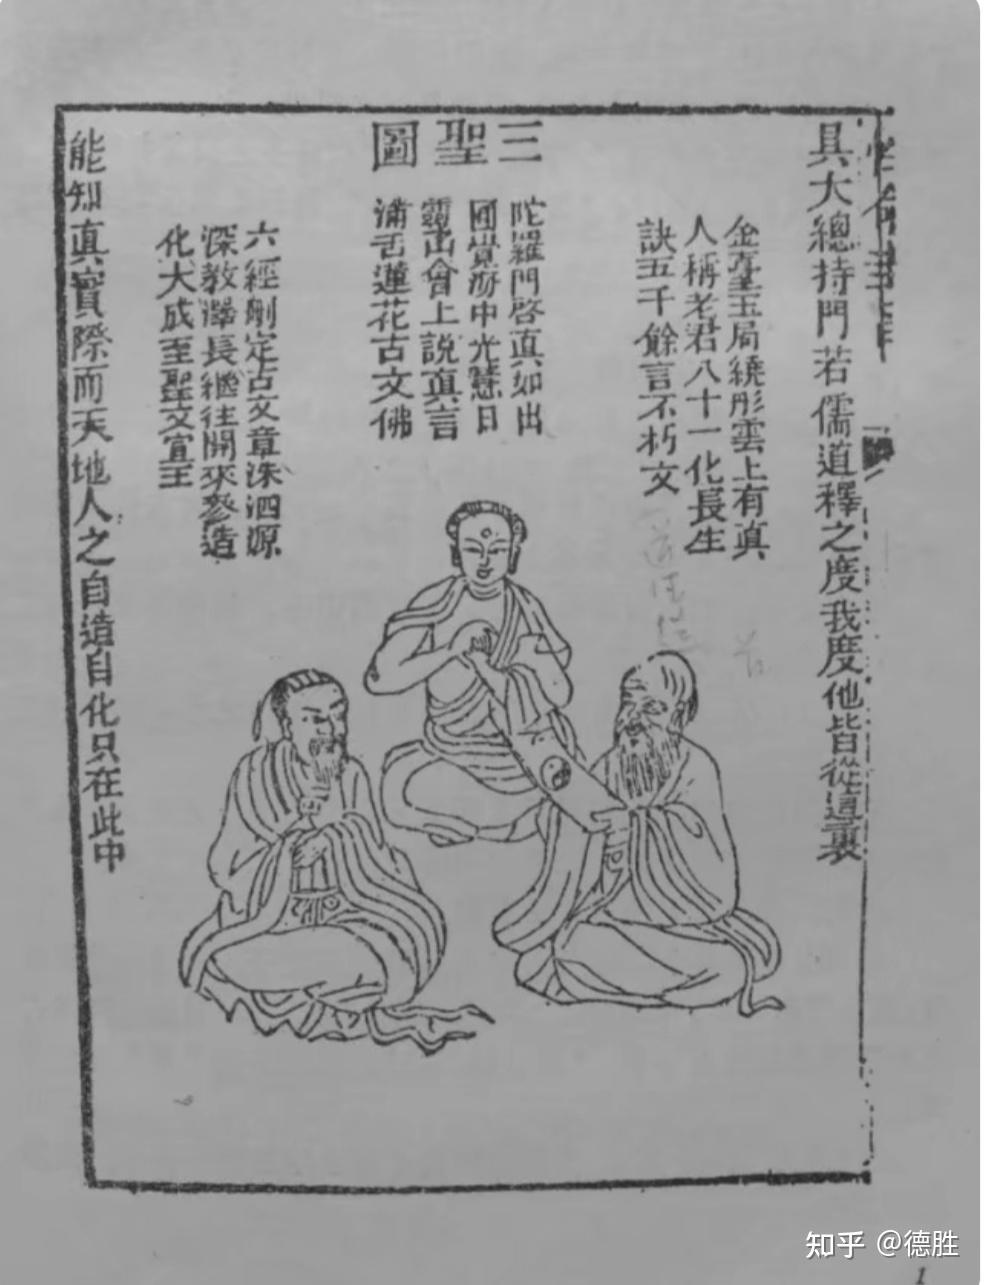 具大總持門若儒道釋之度我度他皆從這裏
金臺玉局繞彤雲上有真
人稱老君八十一化長生
訣五千餘言不朽文
三聖圖
陀羅門啓真如出
圓覺海中光慧日
靈山會上說真言
滿舌蓮花古文佛
六經刪定古文章洙泗源
深教澤長繼往開來參造
化大成至聖文宣王
能知真實際而天地人之自造自化只在此中
知乎 @德胜
1